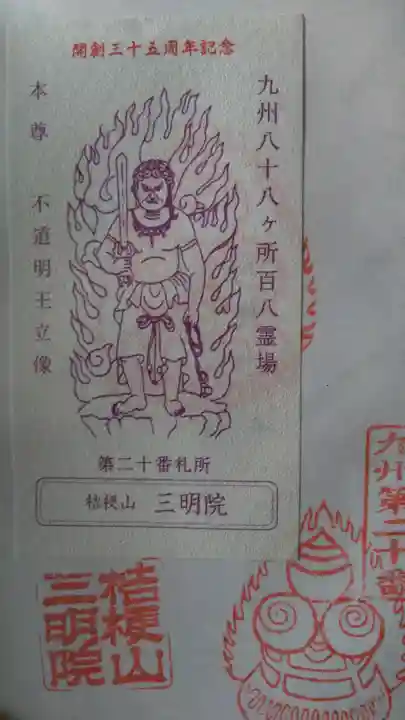 開創三十五周年記念
九州八十八ヶ所百八霊場
本尊 不道明王立像
第二十番札所
桔梗山 三明院
九州第二十番
桔梗山
三明院